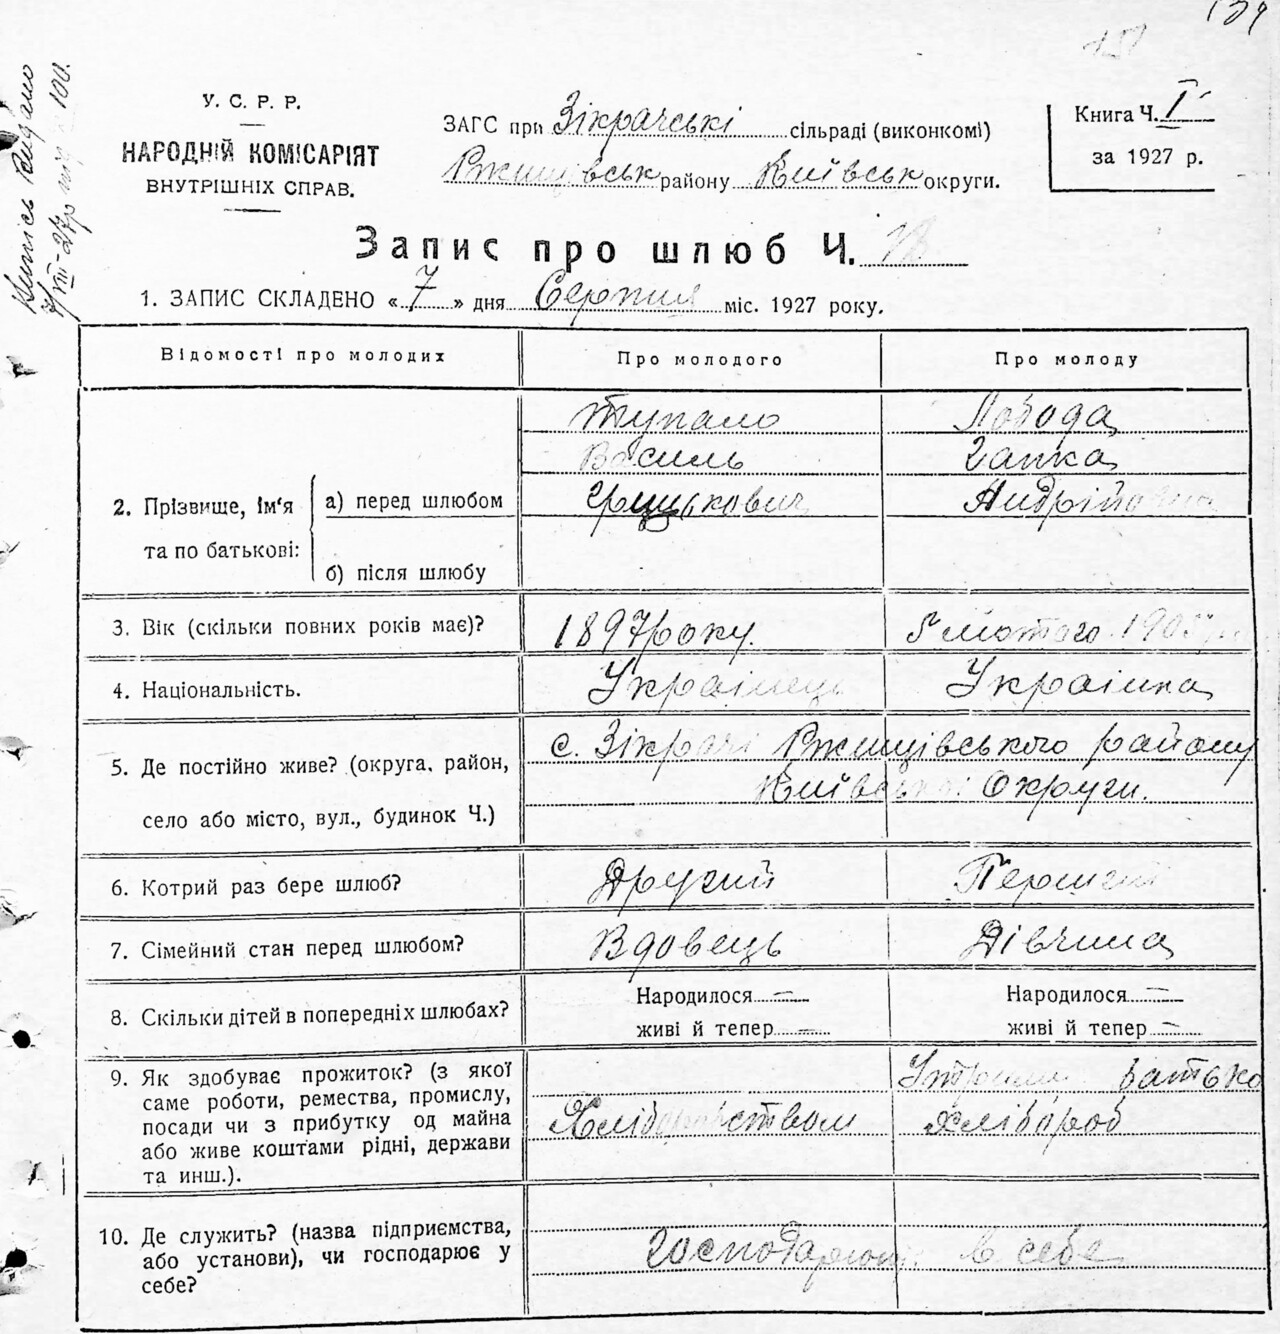 151
У. С. Р. Р.
НАРОДНІЙ КОМІСАРІЯТ
ВНУТРІШНІХ СПРАВ.
ЗАГС при Зікрачські сільраді (виконкомі)
Ржищівськ району Київськ округи.
Книга Ч. I
за 1927 р.
Запис про шлюб Ч. 18
1. ЗАПИС СКЛАДЕНО «7» дня Серпня міс. 1927 року.
Відомості про молодих
Про молодого
Про молоду
2. Прізвище, ім'я
та по батькові:
а) перед шлюбом
б) після шлюбу
Тупало
Василь
Грицькович
Лобода
Гапка
Андрійовна
3. Вік (скільки повних років має)?
1897 року.
5 лютого 1905
4. Національність.
Українець
Українка
5. Де постійно живе? (округа, район,
село або місто, вул., будинок Ч.)
с. Зікрачі Ржищівського району
Київської Округи.
6. Котрий раз бере шлюб?
Другий
Перший
7. Сімейний стан перед шлюбом?
Вдовець
Дівчина
8. Скільки дітей в попередніх шлюбах?
Народилося —
живі й тепер —
Народилося —
живі й тепер —
9. Як здобуває прожиток? (з якої
саме роботи, ремества, промислу,
посади чи з прибутку од майна
або живе коштами рідні, держави
та инш.).
Хліборобством
батько
хлібороб
10. Де служить? (назва підприємства,
або установи), чи господарює у
себе?
Господарюють в себе